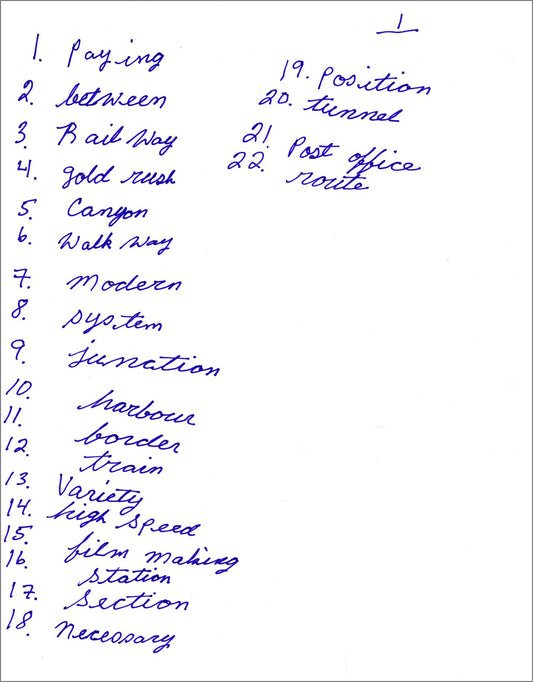 1
1. Paying
2. between
3. Rail Way
4. gold rush
5. Canyon
6. Walk Way
7. Modern
8. system
9. junation
10. harbour
11. border
12. train
13. Variety
14. high speed
15. film making
16. station
17. section
18. necessary
19. Position
20. tunnel
21. Post office
22. route